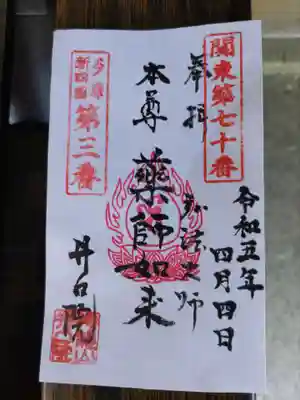 関東第七十番
奉拝
弘法大師
令和五年
四月四日
本尊
薬師如来
多摩
新四国
第三番
井口院